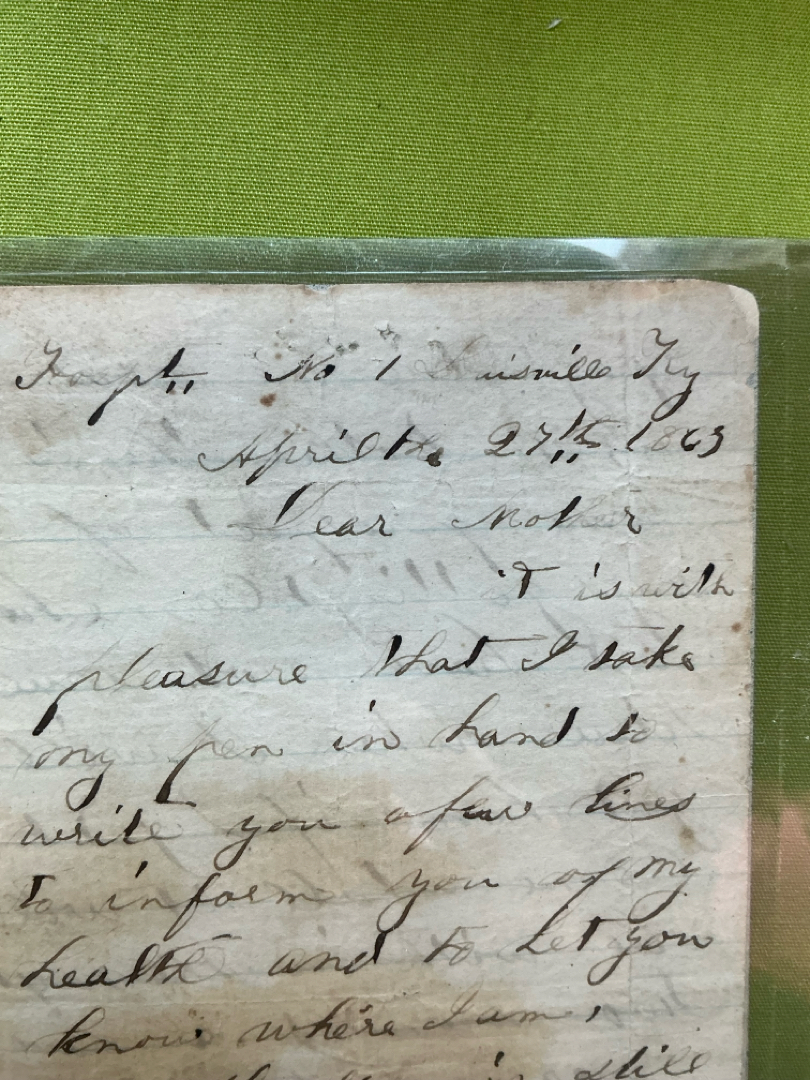 Hospt. No 1 Louisville Ky
April the 27th 1863
Dear Mother
it is with
pleasure that I take
my pen in hand to
write you a few lines
to inform you of my
health and to let you
know where I am,
is still